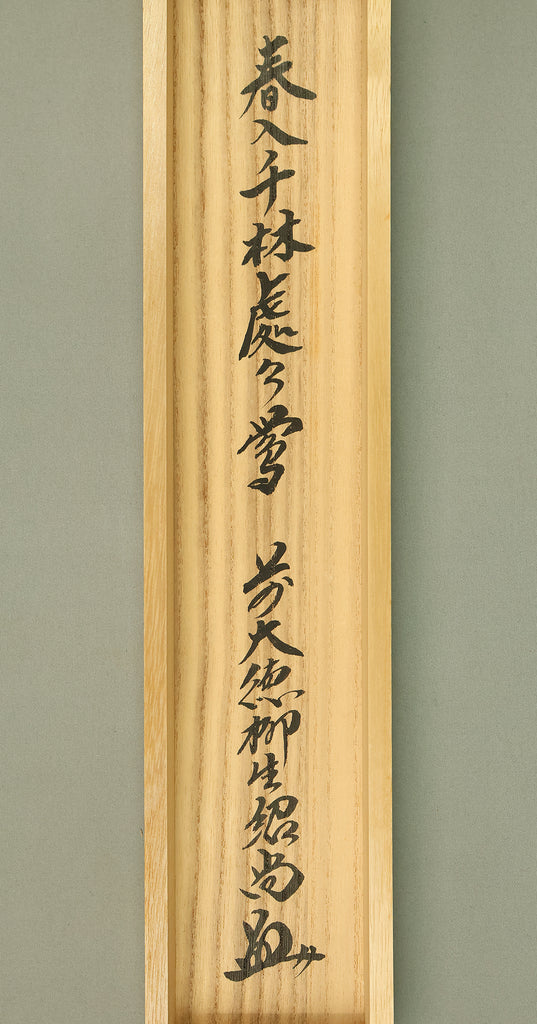 春入千林處々鶯　前大徳柳生紹尚